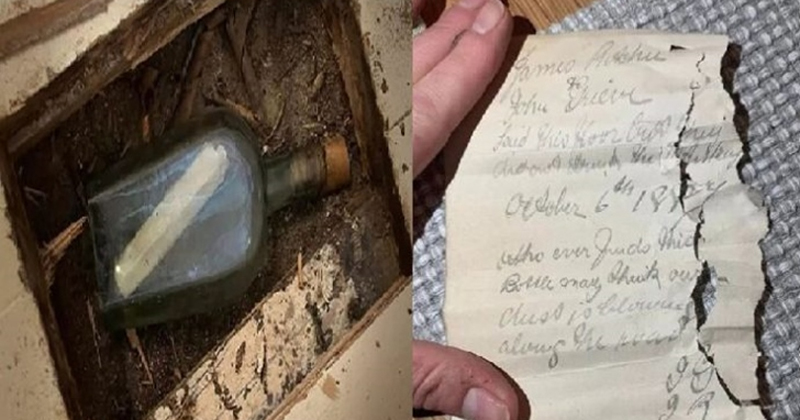 James Ritchie
& John Grieve
laid this floor but they
did not drink the whisky
October 6th 1887
who ever finds this
Bottle may think our
dust is blowing
along the road
J G
J R